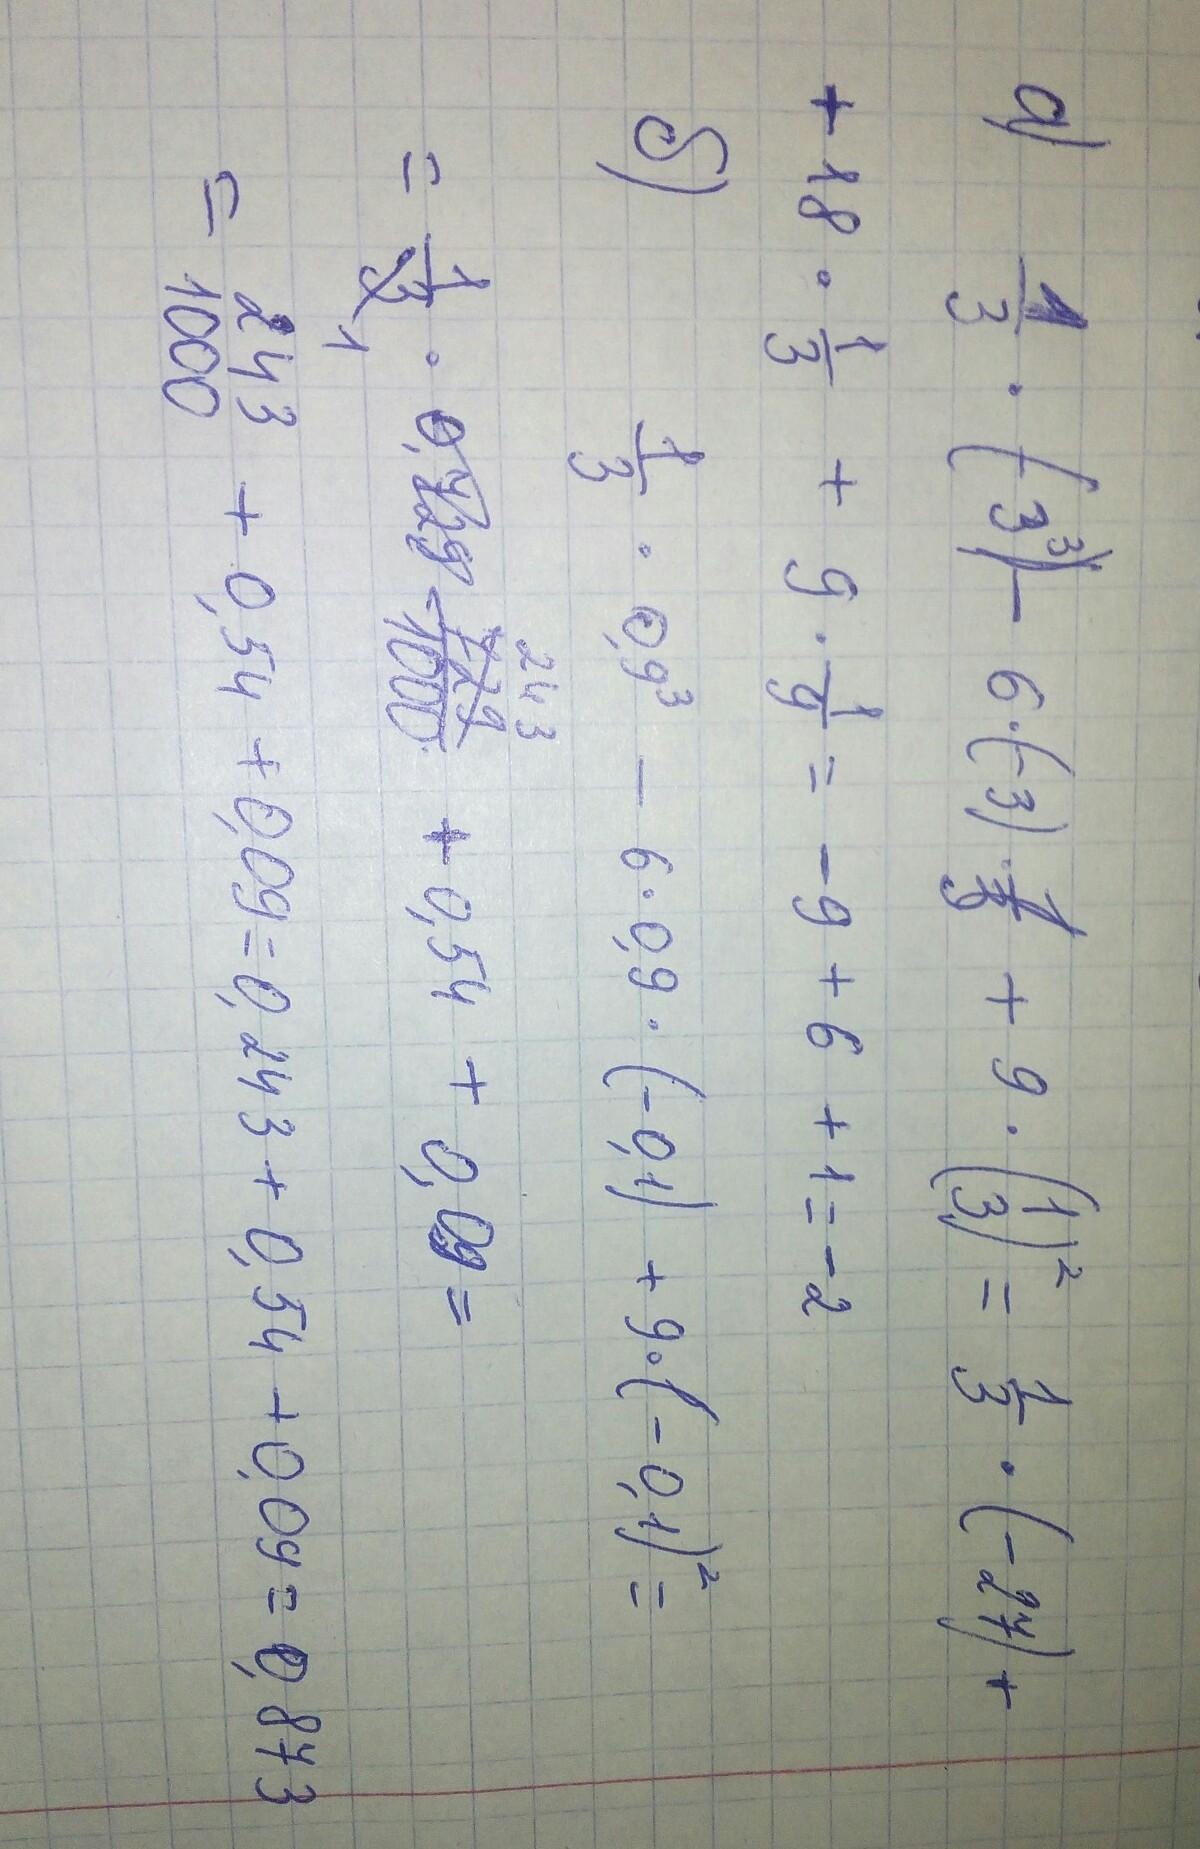 а) 1/3 · (-3)³ - 6·(-3)·1/3 + 9·(1/3)² = 1/3 · (-27) +
+ 18 · 1/3 + 9 · 1/9 = -9 + 6 + 1 = -2
б) 1/3 · 0,9³ - 6·0,9·(-0,1) + 9·(-0,1)² =
= 1/3 · 0,729 729/1000 + 0,54 + 0,09 =
= 243/1000 + 0,54 + 0,09 = 0,243 + 0,54 + 0,09 = 0,873